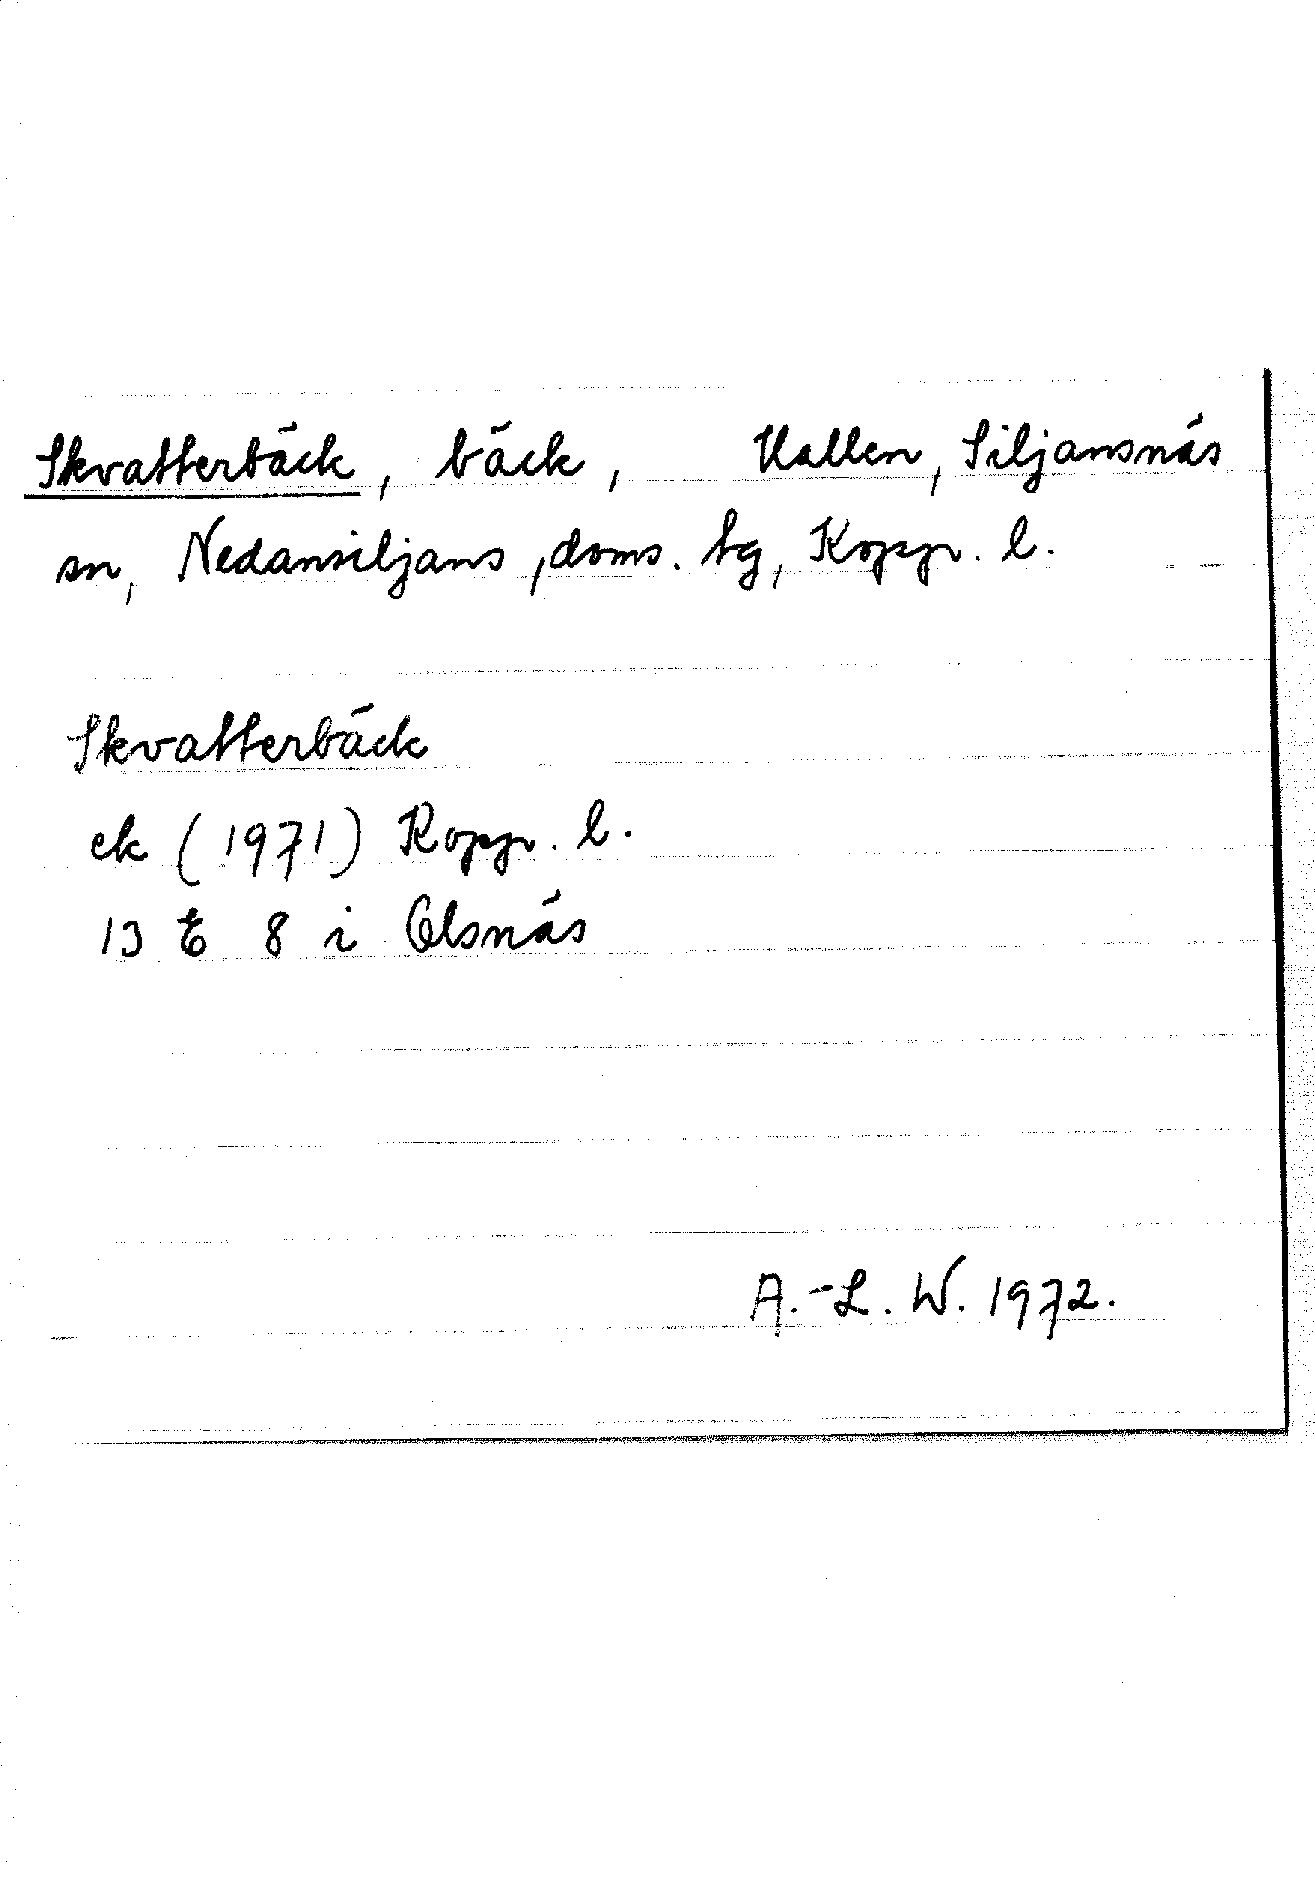 Skvatterbäck, bäck, Vallen, Siljansnäs
sn, Nedansiljans, doms. tg, Koppr. l.
Skvatterbäck
ek (1971) Koppr. l.
13 E 8 i Olsnäs
A.-L. W. 1972.